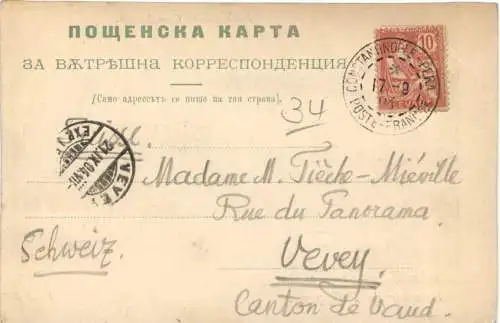 ПОЩЕНСКА КАРТА
ЗА ВѪТРѢШНА КОРРЕСПОНДЕНЦИЯ
(Само адрессътъ се пише на тая страна).
10
CONSTANTINOPLE-PERA
17-9
04
POSTE FRANÇ
34
Suisse.
VEVEY
21.IX.04.VII-
Madame M. Tièche-Miéville
Rue du Panorama.
Schweiz.
Vevey.
Canton de Vaud.